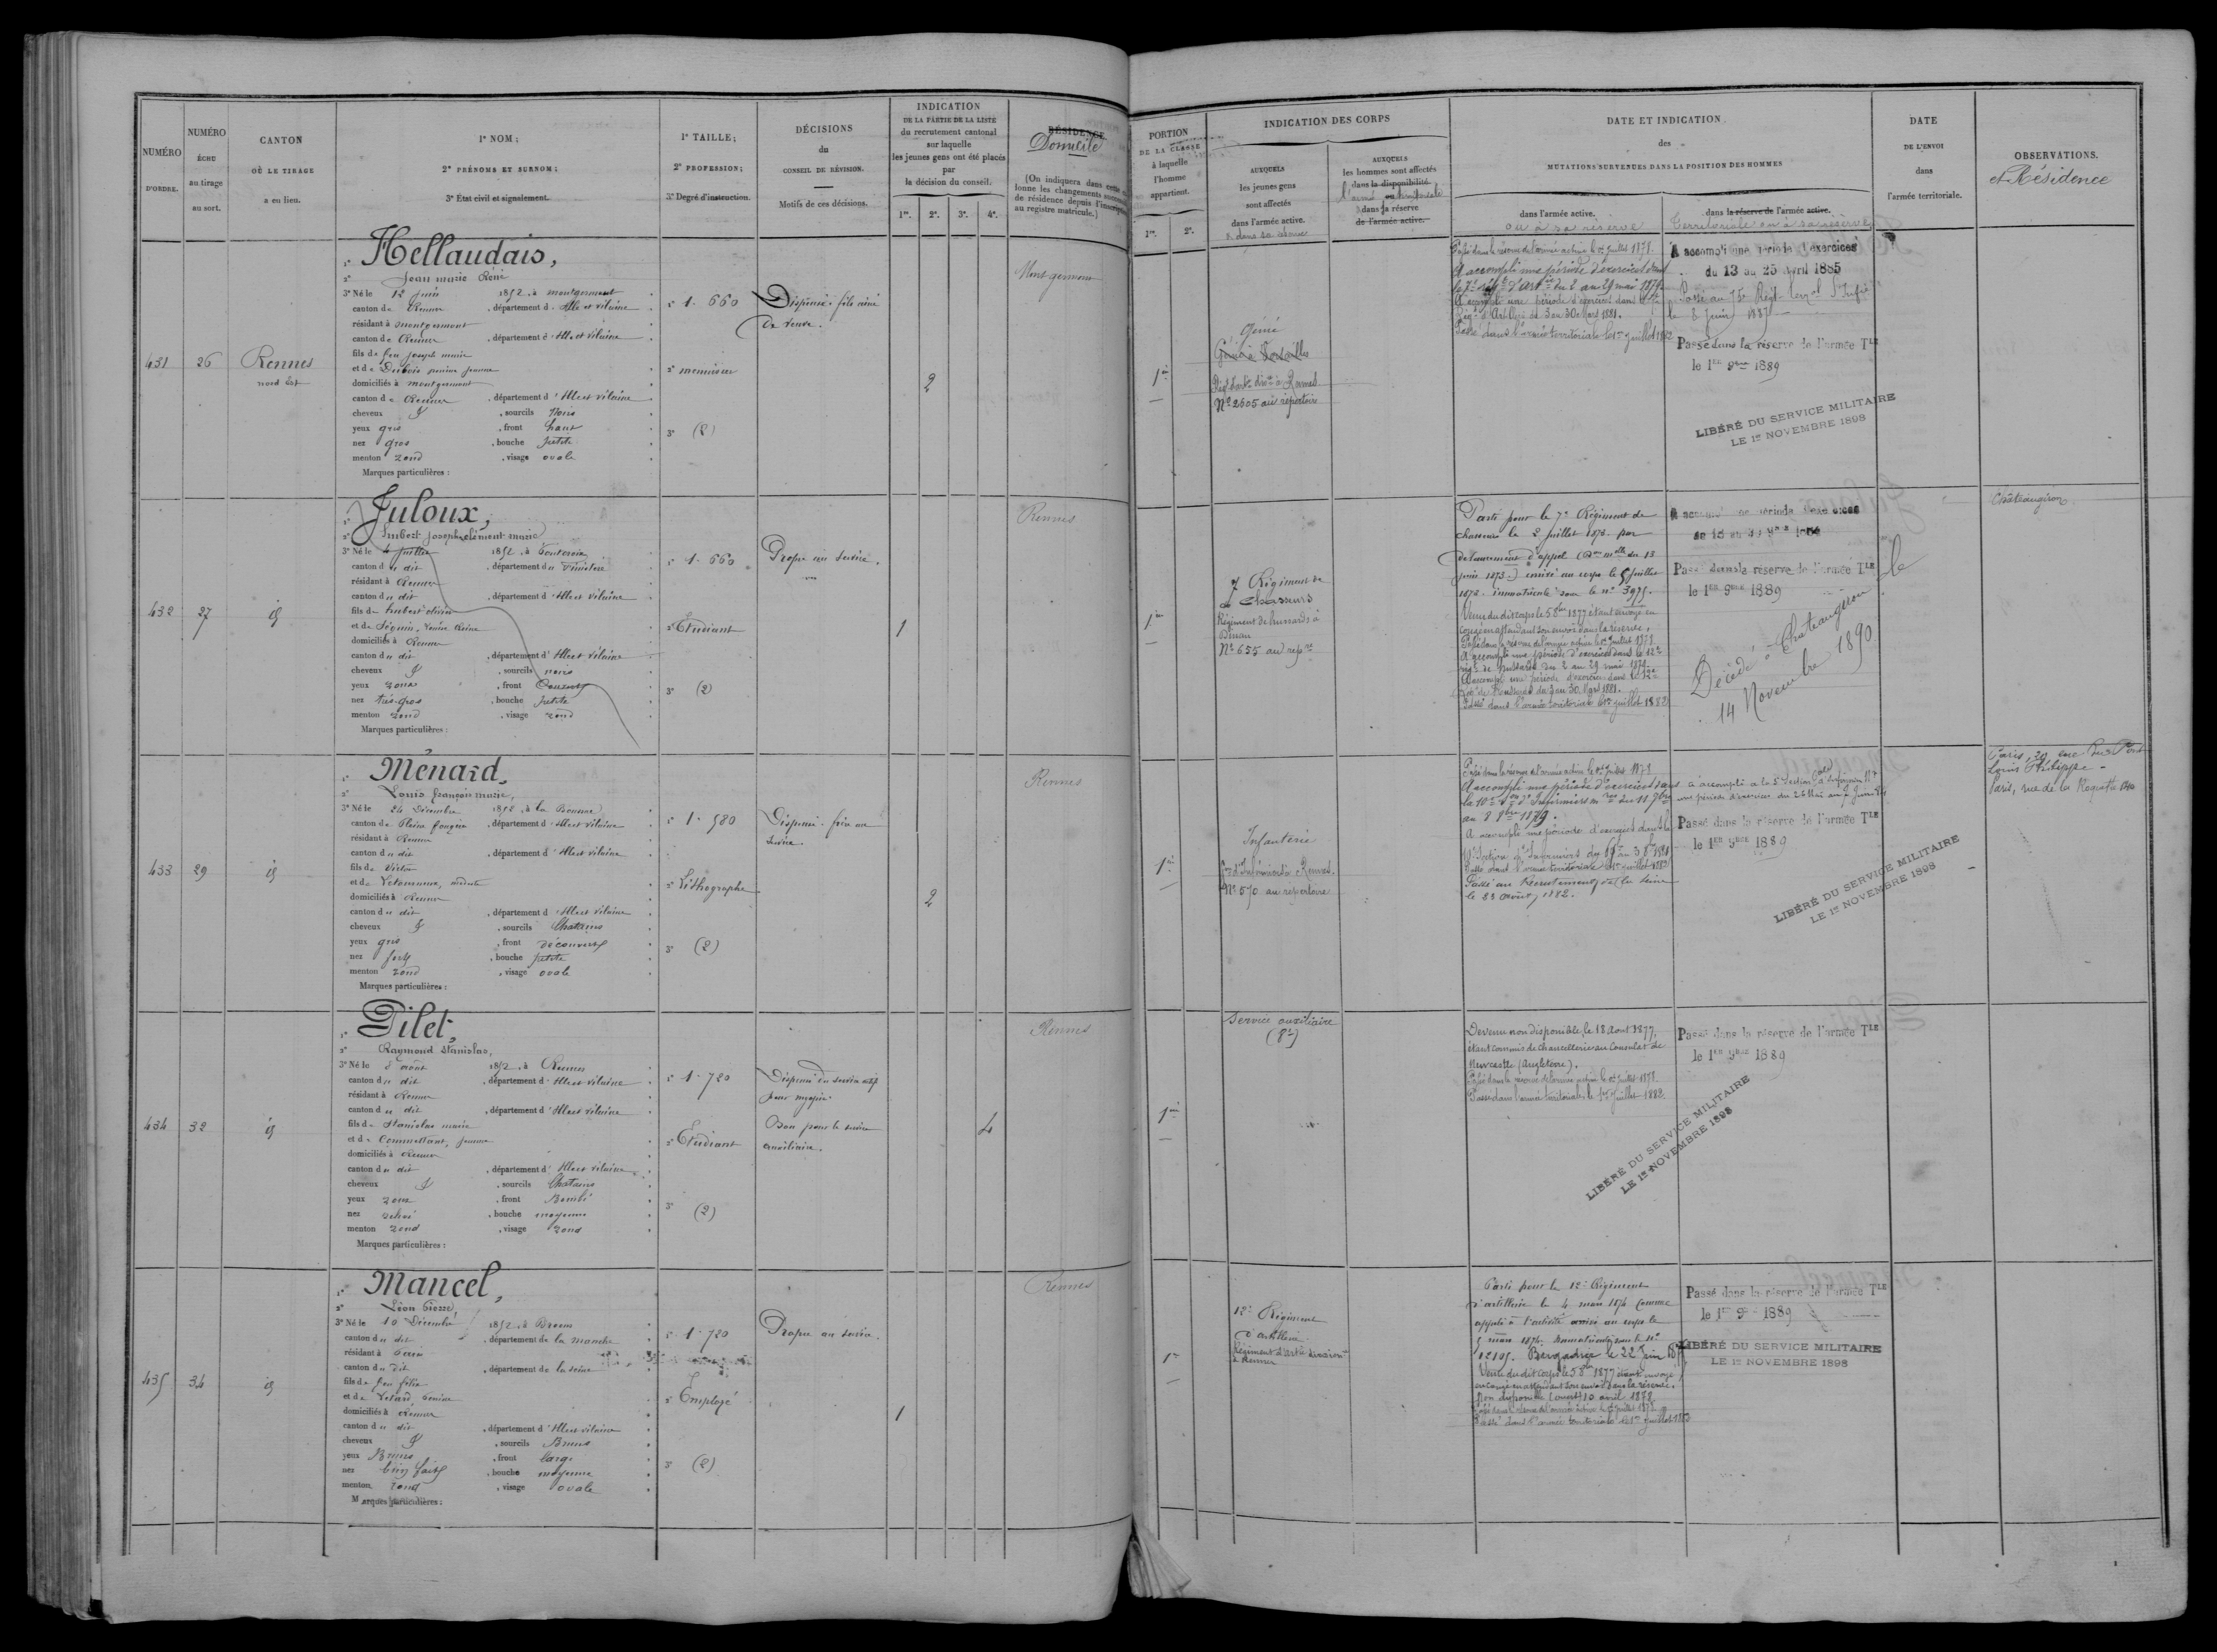 NUMÉRO
D'ORDRE.
NUMÉRO
ÉCHU
au tirage
au sort.
CANTON
OÙ LE TIRAGE
a eu lieu.
1° NOM;
2° PRÉNOMS ET SURNOM;
3° État civil et signalement.
1° TAILLE;
2° PROFESSION;
3° Degré d'instruction.
DÉCISIONS
du
CONSEIL DE RÉVISION.
Motifs de ces décisions.
INDICATION
DE LA PARTIE DE LA LISTE
du recrutement cantonal
sur laquelle
les jeunes gens ont été placés
par
la décision du conseil.
1re. 2e. 3e. 4e.
RÉSIDENCE
Domicile
(On indiquera dans cette
lonne les changements
de résidence depuis l'inscription
au registre matricule.)
PORTION
DE LA CLASSE
à laquelle
l'homme
appartient.
1re. 2e.
INDICATION DES CORPS
AUXQUELS
les jeunes gens
sont affectés
dans l'armée active.
& dans sa réserve
AUXQUELS
les hommes sont affectés
dans la disponibilité
l'armée ou territoriale
dans la réserve
de l'armée active.
DATE ET INDICATION
des
MUTATIONS SURVENUES DANS LA POSITION DES HOMMES
dans l'armée active.
ou à sa réserve
dans la réserve de l'armée active.
Territoriale ou à sa réserve
DATE
DE L'ENVOI
dans
l'armée territoriale.
OBSERVATIONS.
et Résidence
431
26
Rennes
nord Est
1° Hellaudais,
2° Jean marie René
3° Né le 12 Juin 1852, à montgermont
canton de Rennes, département d'Ille et vilaine
résidant à montgermont
canton de Rennes, département d'Ille et vilaine
fils de feu Joseph marie
et de Dubois
domiciliés à montgermont
canton de Rennes, département d'Ille et vilaine
cheveux, sourcils Noirs
yeux gris, front haut
nez gros, bouche petite
menton rond, visage ovale
Marques particulières :
1° 1. 660
2° menuisier
3° (2)
Dispensé. fils aîné
de veuve.
2
Montgermont
1re
Génie
Génie à Versailles
Régt d'arte divre à Rennes
No 2605 au répertoire
Passé dans la réserve de l'armée active le 1er Juillet 1878.
A accompli une période d'exercices dans
le 7e régt d'Artie du 2 au 29 mai 1879.
A accompli une période d'exercices dans le 7e
Régt d'Artillerie du 3 au 30 Mars 1881.
Passé dans l'armée territoriale le 1er Juillet 1882
A accompli une période d'exercices
du 13 au 25 Avril 1885
Passé au 75e Régt terral d'Infie
le 8 Juin 1887
Passé dans la réserve de l'armée Tle
le 1er 9bre 1889
LIBÉRÉ DU SERVICE MILITAIRE
LE 1er NOVEMBRE 1898
432
27
id
1° Juloux,
2° Imbert Joseph clément marie
3° Né le 4 Juillet 1852, à
canton du dit, département du Finistère
résidant à Rennes
canton du dit, département d'Ille et vilaine
fils de
et de Séguin,
domiciliés à Rennes
canton du dit, département d'Ille et vilaine
cheveux, sourcils noirs
yeux roux, front Couvert
nez très-gros, bouche petite
menton rond, visage rond
Marques particulières :
1° 1. 660
2° Etudiant
3° (2)
Propre au service.
1
Rennes
1re
7e Régiment de
Chasseurs
Régiment de hussards à
Dinan
No 655 au repre
Parti pour le 7e Régiment de
chasseurs le 2 Juillet 1873 par
devancement d'appel (Don mlle du 13
juin 1873.) arrivé au corps le 5 Juillet
1873. immatriculé sous le no 3975.
Venu du dit corps le 5 8bre 1877 étant envoyé en
congé en attendant son envoi dans la réserve.
Passé dans la réserve de l'armée active le 1er Juillet 1878
A accompli une période d'exercices dans le 12e
régt de hussards du 2 au 29 mai 1879.
A accompli une période d'exercices dans le 12e
Régt de Hussards du 3 au 30 Mars 1881.
Passé dans l'armée territoriale le 1er Juillet 1882
A accompli une période d'exercices
Passé dans la réserve de l'armée Tle
le 1er 9bre 1889
Décédé à Chateaugiron
14 Novembre 1890
Châteaugiron
433
29
id
1° Menard,
2° Louis françois marie,
3° Né le 24 Décembre 1852, à la Boussac
canton de Pleine fougère, département d'Ille et vilaine
résidant à Rennes
canton du dit, département d'Ille et vilaine
fils de Victor
et de
domiciliés à Rennes
canton du dit, département d'Ille et vilaine
cheveux, sourcils Chatains
yeux gris, front découvert
nez fort, bouche petite
menton rond, visage ovale
Marques particulières :
1° 1. 580
2° Lithographe
3° (2)
Dispensé. frère au
service.
2
Rennes
1re
Infanterie
Son d'Infirmiers à Rennes.
No 570 au répertoire
Passé dans la réserve de l'armée active le 1er Juillet 1878
A accompli une période d'exercices dans
la 10e Son d'Infirmiers
au 8 8bre 1879.
A accompli une période d'exercices dans la
10e Section d'Infirmiers
Passé dans l'armée territoriale le 1er juillet 1882
Passé au Recrutement de la Seine
le 23 août 1882.
a accompli à la 5e Section d'Infirmiers
une période d'exercices du 26 Mai au 7 Juin
Passé dans la réserve de l'armée Tle
le 1er 9bre 1889
LIBÉRÉ DU SERVICE MILITAIRE
LE 1er NOVEMBRE 1898
Paris, 29 rue du Pont
Louis Philippe
Paris, rue de la Roquette
434
32
id
1° Pilet,
2° Raymond Stanislas,
3° Né le août 1852, à Rennes
canton du dit, département d'Ille et vilaine
résidant à Rennes
canton du dit, département d'Ille et vilaine
fils de Stanislas marie
et de
domiciliés à Rennes
canton du dit, département d'Ille et vilaine
cheveux, sourcils Chatains
yeux roux, front Bombé
nez relevé, bouche moyenne
menton rond, visage rond
Marques particulières :
1° 1. 720
2° Etudiant
3° (2)
Dispensé du service actif
pour myopie.
Bon pour le service
auxiliaire.
4
Rennes
1re
Service auxiliaire
Devenu non disponible le 18 Aout 1877,
étant commis de chancellerie au Consulat de
Newcastle (Angleterre).
Passé dans la réserve de l'armée active le 1er Juillet 1878.
Passé dans l'armée territoriale, le 1er Juillet 1882.
Passé dans la réserve de l'armée Tle
le 1er 9bre 1889
LIBÉRÉ DU SERVICE MILITAIRE
LE 1er NOVEMBRE 1898
435
34
id
1° Mancel,
2° Léon Pierre,
3° Né le 10 Décembre 1852, à
canton du dit, département de la manche
résidant à Paris
canton du dit, département de la Seine
fils de feu félix
et de
domiciliés à Rennes
canton du dit, département d'Ille et vilaine
cheveux, sourcils Bruns
yeux Bruns, front large
nez bien fait, bouche moyenne
menton rond, visage ovale
Marques particulières :
1° 1. 720
2° Employé
3° (2)
Propre au service.
1
Rennes
1re
12e Régiment
d'artillerie
Régiment d'artie divisionre
à Rennes
Parti pour le 12e Régiment
d'artillerie le 4 mars 1874 comme
appelé à l'activité arrivé au corps le
5 mars 1874. immatriculé sous le No
12105. Brigadier le 22 Juin
Venu du dit corps le 5 8bre 1877 étant envoyé
en congé en attendant son envoi dans la réserve.
Non disponible 10 avril 1878.
Passé dans la réserve de l'armée active le 1er Juillet 1878
Passé dans l'armée territoriale le 1er Juillet 1883
Passé dans la réserve de l'armée Tle
le 1er 9bre 1889
LIBÉRÉ DU SERVICE MILITAIRE
LE 1er NOVEMBRE 1898